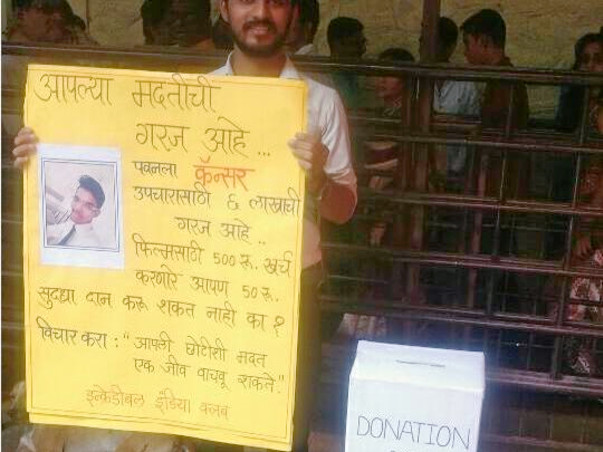 आपल्या मदतीची
गरज आहे...
पवनला कॅन्सर
उपचारासाठी 6 लाखाची
गरज आहे..
फिल्मसाठी 500 रू. खर्च
करणारे आपण 50 रू.
सुद्धा दान करू शकत नाही का ?
विचार करा : "आपली छोटीशी मदत
एक जीव वाचवू शकते."
इन्क्रेडीबल इंडिया क्लब
DONATION